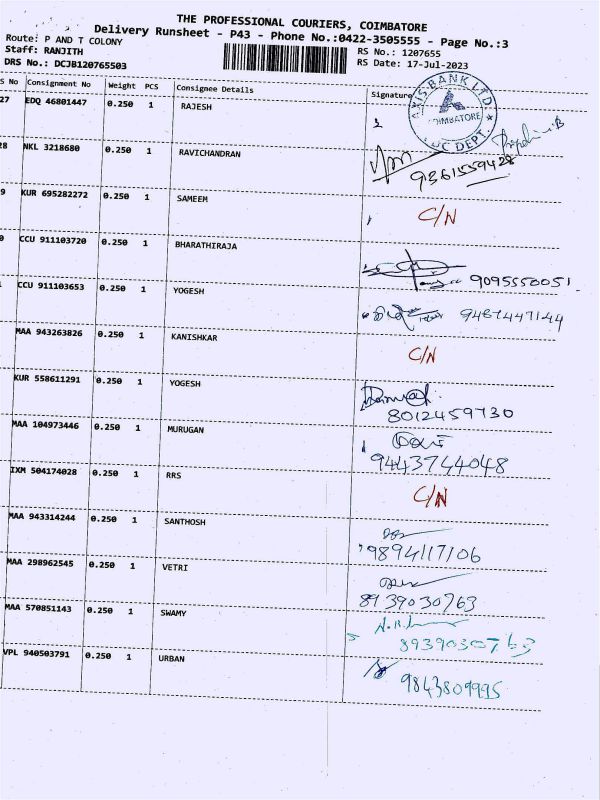 THE PROFESSIONAL COURIERS, COIMBATORE
Delivery Runsheet - P43 - Phone No.:0422-3505555 - Page No.:3
Route: P AND T COLONY
Staff: RANJITH
DRS No.: DCJB120765503
RS No.: 1207655
RS Date: 17-Jul-2023
S No Consignment No Weight PCS Consignee Details Signature
AXIS BANK LTD
COIMBATORE
DEPT
27 EDQ 46801447 0.250 1 RAJESH
28 NKL 3218680 0.250 1 RAVICHANDRAN 9361559428
9 KUR 695282272 0.250 1 SAMEEM C/N
0 CCU 911103720 0.250 1 BHARATHIRAJA 9095550051
CCU 911103653 0.250 1 YOGESH 9487447144
MAA 943263826 0.250 1 KANISHKAR C/N
KUR 558611291 0.250 1 YOGESH 8012459730
MAA 104973446 0.250 1 MURUGAN 9443744048
IXM 504174028 0.250 1 RRS C/N
MAA 943314244 0.250 1 SANTHOSH 9894117106
MAA 298962545 0.250 1 VETRI 8939030763
MAA 570851143 0.250 1 SWAMY 8939030763
VPL 940503791 0.250 1 URBAN 9843809995